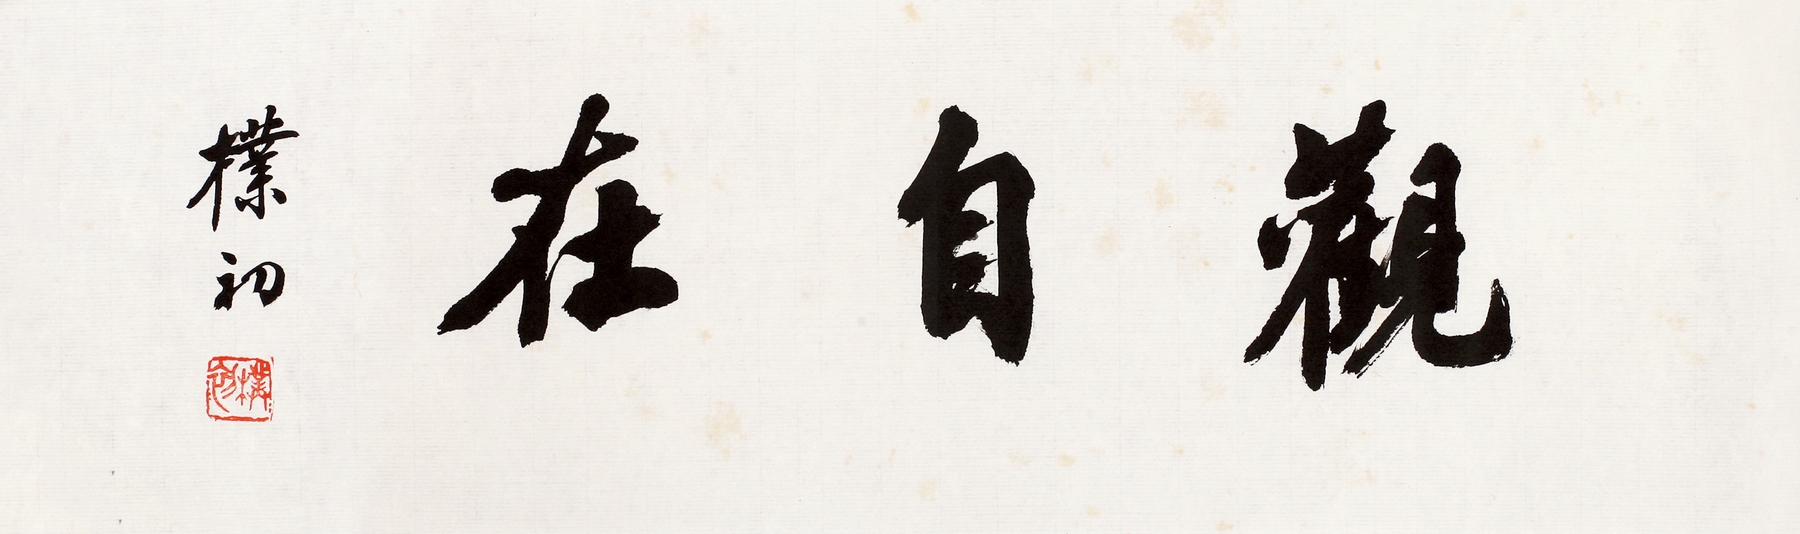 觀自在
樸初
樸初